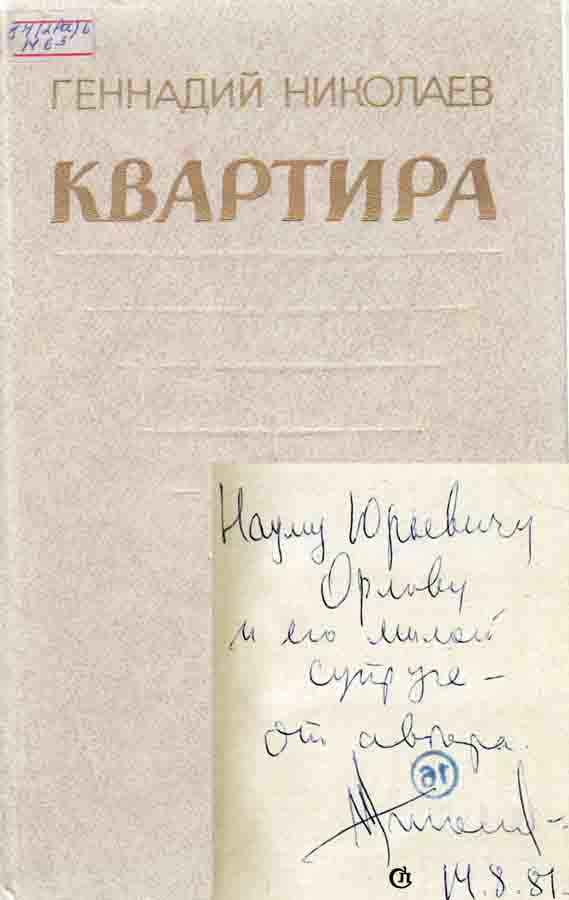 84(2Рос)6
Н 63
ГЕННАДИЙ НИКОЛАЕВ
КВАРТИРА
Науму Юрьевичу
Орлову
и его милой
супруге –
от автора.
14.8.81.